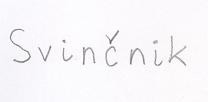 Svinčnik